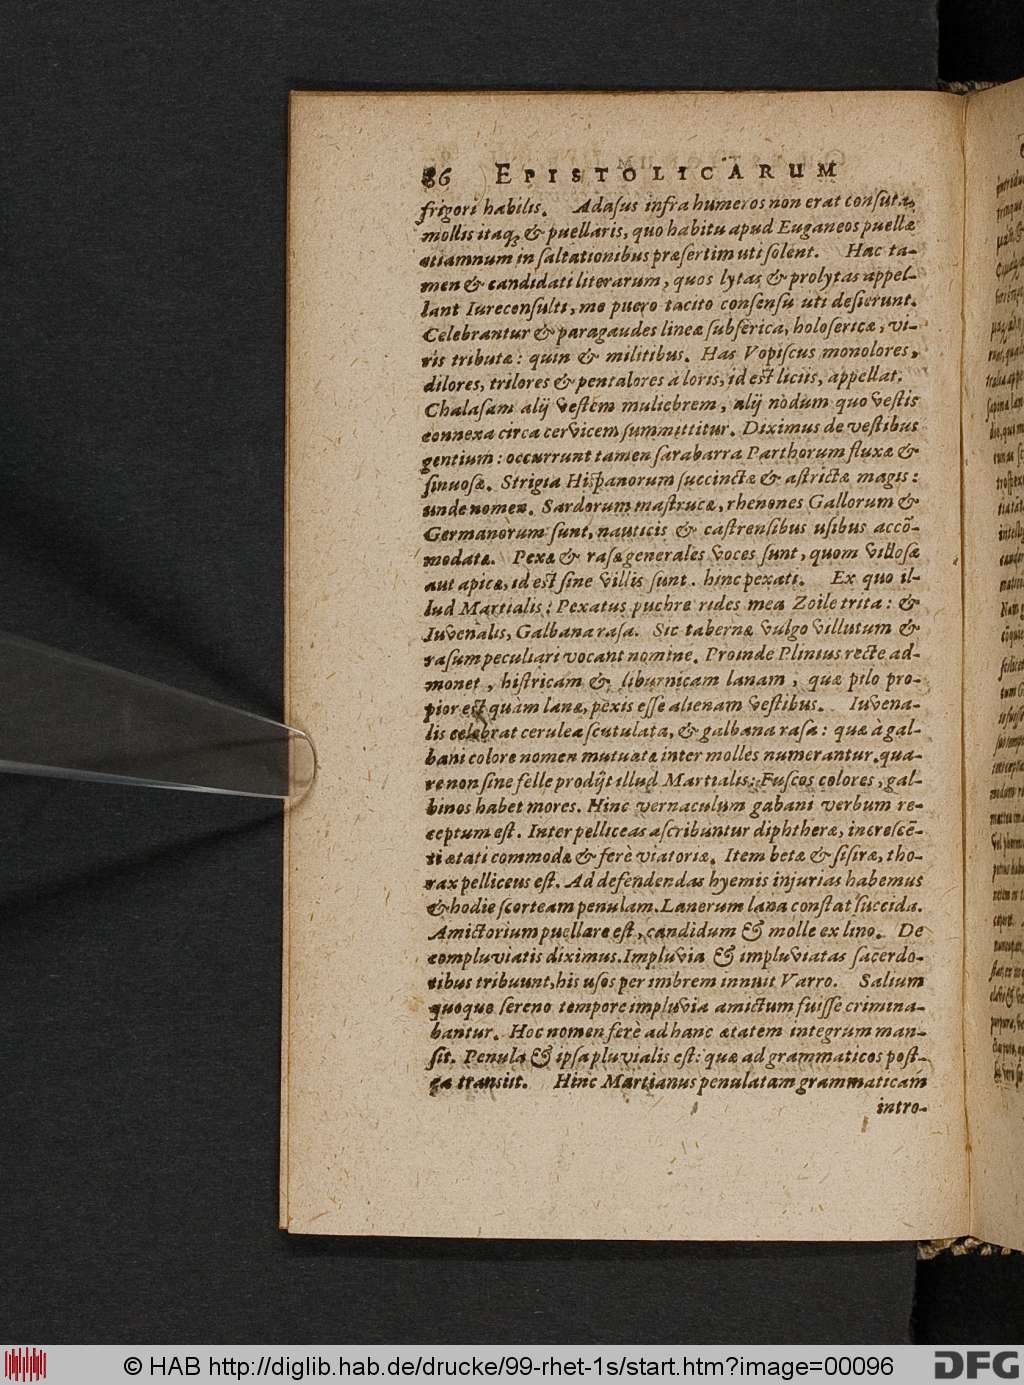 86 EPISTOLICARUM
frigori habilis. Adasus infra humeros non erat consuta,
mollis itaq; & puellaris, quo habitu apud Euganeos puellæ
etiamnum in saltationibus præsertim uti solent. Hac ta-
men & candidati literarum, quos lytas & prolytas appel-
lant Iureconsulti, me puero tacito consensu uti desierunt.
Celebrantur & paragaudes lineæ subserica, holosericæ, vi-
ris tributæ: quin & militibus. Has Vopiscus monolores,
dilores, trilores & pentalores à loris, id est liciis, appellat.
Chalasam alij vestem muliebrem, alij nodum quo vestis
connexa circa cervicem summittitur. Diximus de vestibus
gentium: occurrunt tamen sarabarra Parthorum fluxæ &
sinuosæ. Strigia Hispanorum succinctæ & astrictæ magis:
unde nomen. Sardorum mastrucæ, rhenones Gallorum &
Germanorum sunt, nauticis & castrensibus usibus accõ-
modatæ. Pexæ & rasæ generales voces sunt, quom villosæ
aut apicæ, id est sine villis sunt. hinc pexati. Ex quo il-
lud Martialis: Pexatus puchre rides mea Zoile trita: &
Iuvenalis, Galbana rasa. Sic tabernæ vulgo villutum &
rasum peculiari vocant nomine. Proinde Plinius recte ad-
monet, histricam & liburnicam lanam, quæ pilo pro-
pior est quàm lanæ, pexis esse alienam vestibus. Iuvena-
lis celebrat cerulea scutulata, & galbana rasa: quæ à gal-
bani colore nomen mutuata inter molles numerantur. qua-
re non sine felle prodijt illud Martialis: Fuscos colores, gal-
binos habet mores. Hinc vernaculum gabani verbum re-
ceptum est. Inter pelliceas ascribuntur diphtheræ, incresce̅-
ti ætati commodæ & ferè viatoriæ. Item betæ & sisiræ, tho-
rax pelliceus est. Ad defendendas hyemis injurias habemus
& hodie scorteam penulam. Lanerum lana constat succida.
Amictorium puellare est, candidum & molle ex lino. De
compluviatis diximus. Impluvia & impluviatas sacerdo-
tibus tribuunt, his usos per imbrem innuit Varro. Salium
quoque sereno tempore impluvia amictum fuisse crimina-
bantur. Hoc nomen ferè ad hanc ætatem integrum man-
sit. Penula & ipsa pluvialis est: quæ ad grammaticos post-
ea transiit. Hinc Martianus penulatam grammaticam
intro-
© HAB http://diglib.hab.de/drucke/99-rhet-1s/start.htm?image=00096
DFG